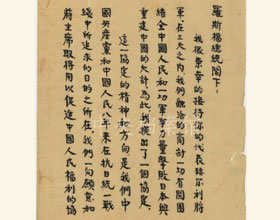 羅斯福總統閣下：
我很榮幸的接待你的代表赫爾利將
軍。在三天之內，我們融洽商討一切有關團
結全中國人民和一切軍事力量擊敗日本與
重建中國的大計。為此，我提出了一個協定。
這一協定的精神和方向，是我們中
國共產黨和中國人民八年來在抗日統一戰
線中所追求的目的之所在。我們一向願意和
蔣主席取得用以促進中國人民福利的協